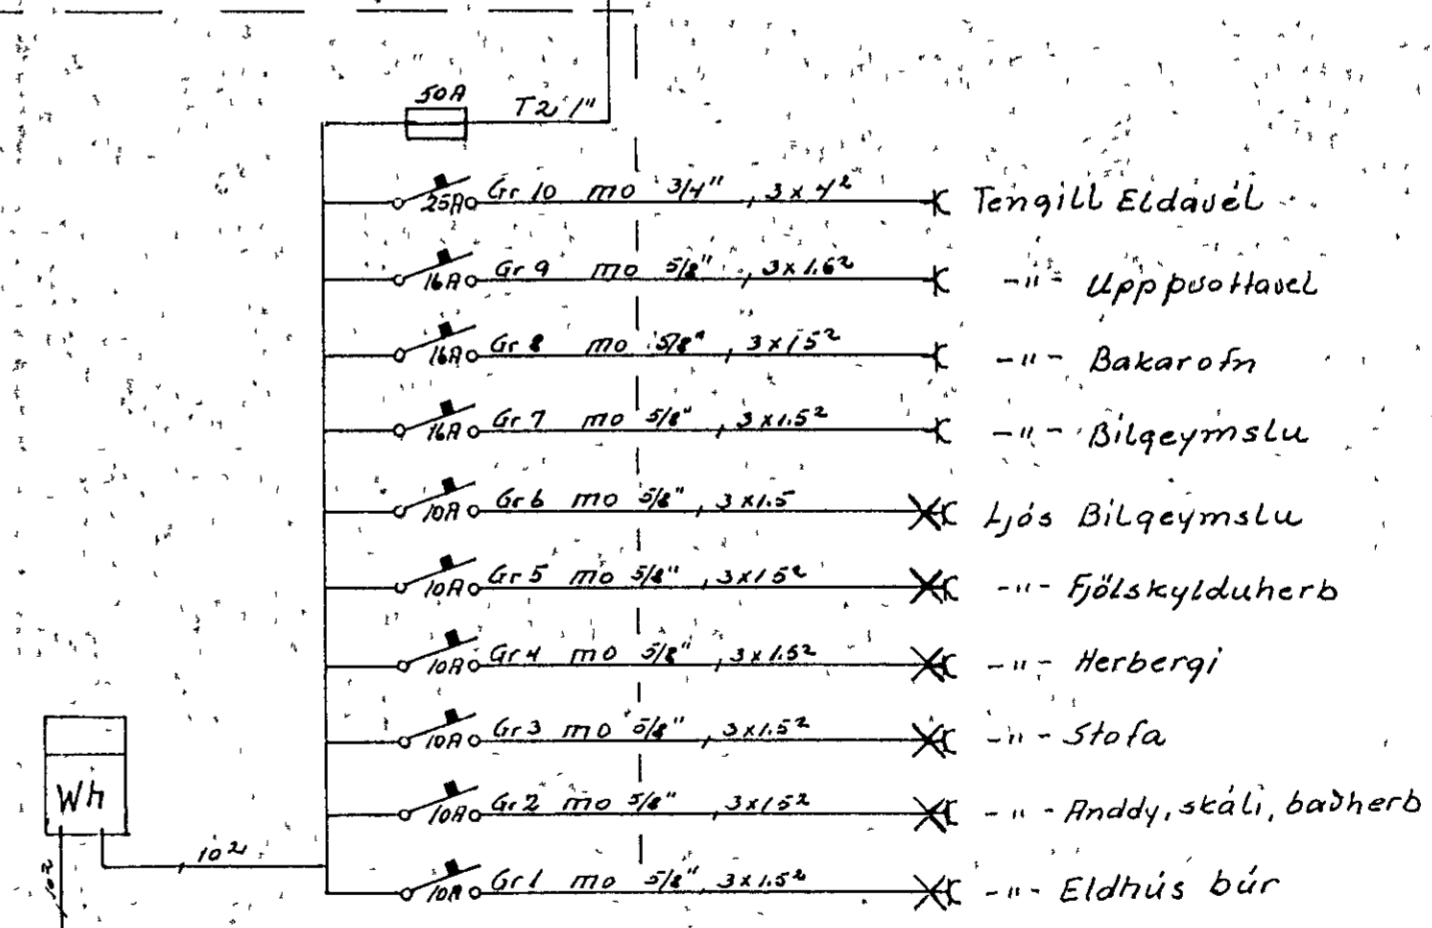 50A T2 1"
25A Gr 10 mo 3/4", 3 x 4² Tengill Eldavél
16A Gr 9 mo 5/8", 3 x 1.6² -"- Uppþvottavel
16A Gr 8 mo 5/8", 3 x 1 5² -"- Bakarofn
16A Gr 7 mo 5/8", 3 x 1.5² -"- Bilgeymslu
10A Gr 6 mo 5/8", 3 x 1.5 Ljós Bilgeymslu
10A Gr 5 mo 5/8", 3 x 1 5² -"- Fjölskylduherb
10A Gr 4 mo 5/8", 3 x 1.5² -"- Herbergi
10A Gr 3 mo 5/8", 3 x 1.5² -"- Stofa
Wh
10A Gr 2 mo 5/8" 3 x 1 5² -"- Anddy, skáli, baðherb
10²
10²
10A Gr 1 mo 5/8", 3 x 1.5² -"- Eldhús búr